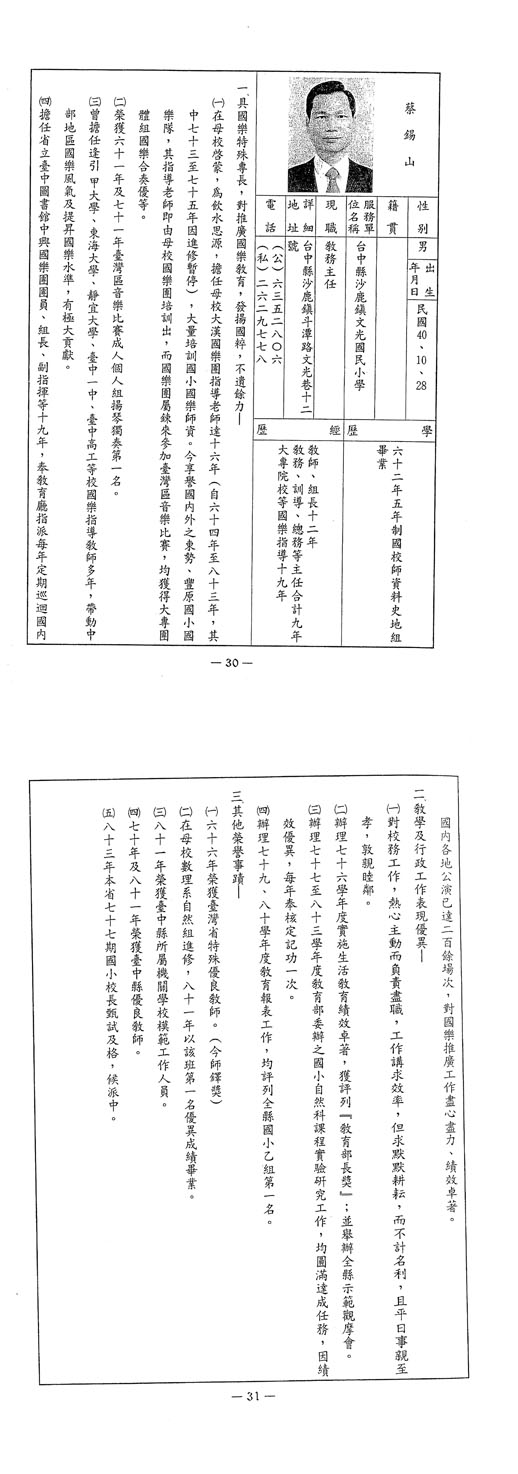 蔡錫山
性別 男 出生年月日 民國40、10、28
籍貫
服務單位名稱 台中縣沙鹿鎮文光國民小學
現職 教務主任
詳細地址 台中縣沙鹿鎮斗潭路文光巷十二號
電話 (公)六三五二八〇六
(私)二六二九七七八
學歷 六十二年五年制國校師資科史地組
畢業
經歷 教師、組長十二年
教務、訓導、總務等主任合計九年
大專院校等國樂指導十九年
一、具國樂特殊專長,對推廣國樂教育,發揚國粹,不遺餘力—
㈠在母校啓蒙,為飲水思源,擔任母校大漢國樂團指導老師達十六年(自六十四年至八十三年,其
中七十三至七十五年因進修暫停),大量培訓國小國樂師資。今享譽國內外之東勢、豐原國小國
樂隊,其指導老師即由母校國樂團培訓出,而國樂團屢錬來參加臺灣區音樂比賽,均獲得大專團
體組國樂合奏優等。
㈡榮獲六十一年及七十一年臺灣區音樂比賽成人個人組揚琴獨奏第一名。
㈢曾擔任逢引甲大學、東海大學、靜宜大學、臺中一中、臺中高工等校國樂指導教師多年,帶動中
部地區國樂風氣及提昇國樂水準,有極大貢獻。
㈣擔任省立臺中圖書館中興國樂團團員、組長、副指揮等十九年,奉教育廳指派每年定期巡迴國內
— 30 —
國內各地公演已達二百餘場次,對國樂推廣工作盡心盡力、績效卓著。
二、教學及行政工作表現優異—
㈠對校務工作,熱心主動而負責盡職,工作講求效率,但求默默耕耘,而不計名利,且平日事親至
孝,敦親睦鄰。
㈡辦理七十六學年度實施生活教育績效卓著,獲評列『教育部長獎』;並舉辦全縣示範觀摩會。
㈢辦理七十七至八十三學年度教育部委辦之國小自然科課程實驗研究工作,均圓滿達成任務,因績
效優異,每年叅核定記功一次。
㈣辦理七十九、八十學年度教育報表工作,均評列全縣國小乙組第一名。
三、其他榮譽事蹟—
㈠六十六年榮獲臺灣省特殊優良教師。(今師鐸獎)
㈡在母校數理系自然組進修,八十一年以該班第一名優異成績畢業。
㈢八十一年榮獲臺中縣所屬機關學校模範工作人員。
㈣七十年及八十一年榮獲臺中縣優良教師。
㈤八十三年本省七十七期國小校長甄試及格,候派中。
— 31 —